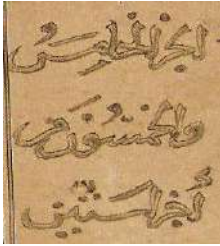 الجزء الخامسُ
والخمسون من
أجزاء ستين